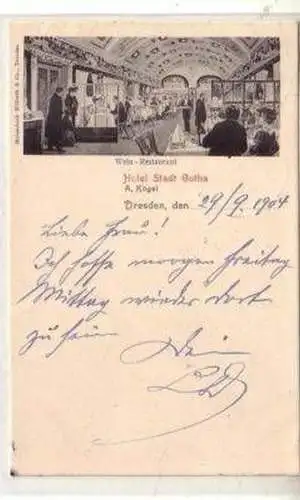 Wein-Restaurant
Hotel Stadt Gotha
A. Kögel
Dresden, den 29/9. 1904
Liebe Frau!
Ich hoffe morgen Freitag
Mittag wieder dort
zu sein
Dein